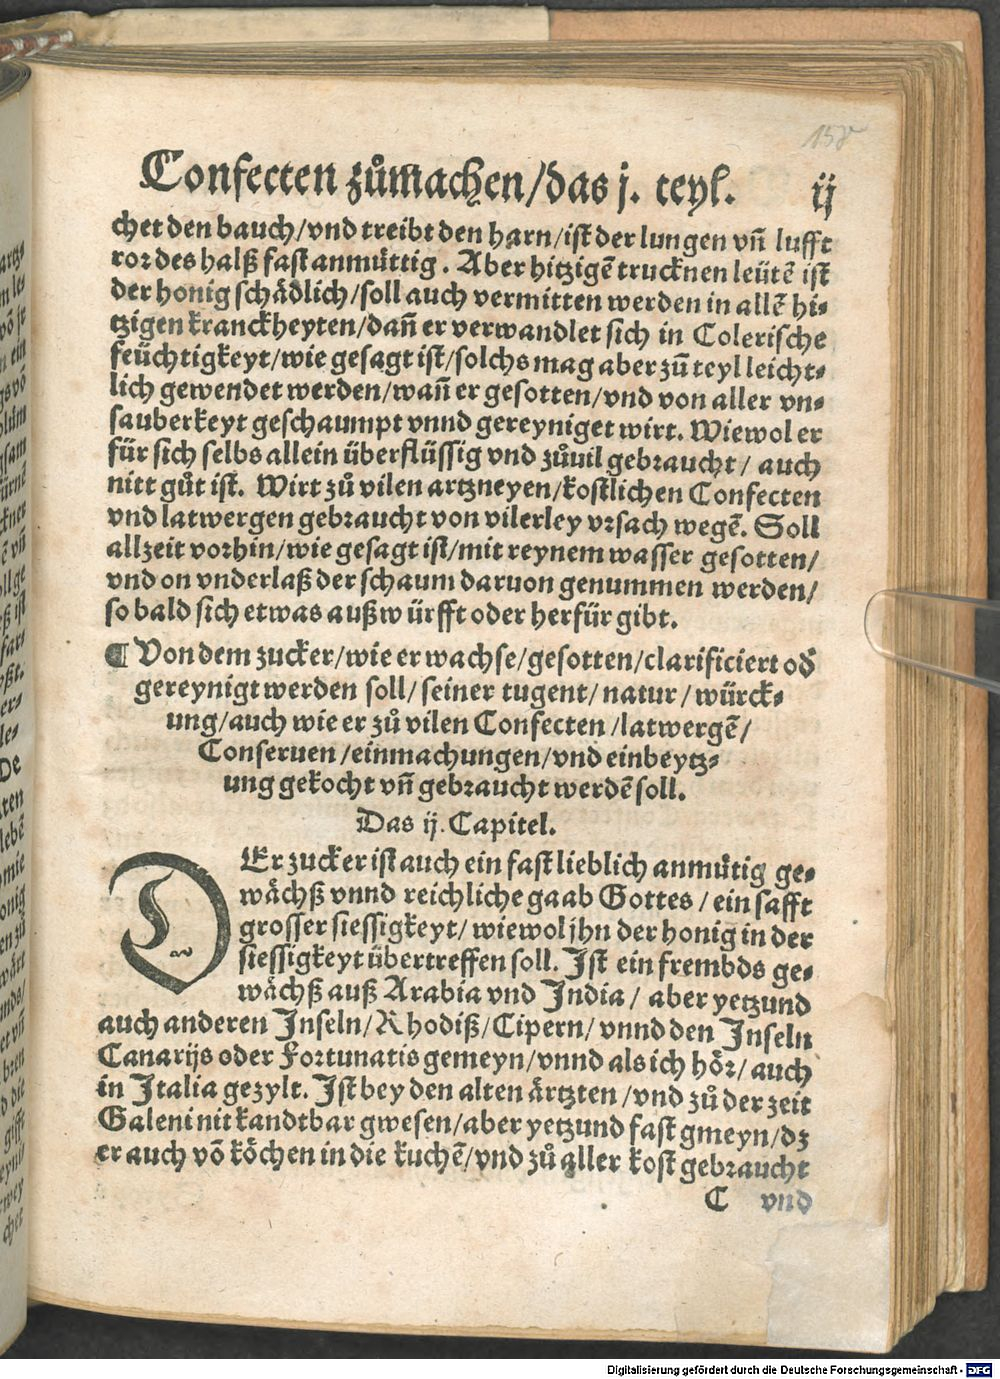 158
Confecten zůmachen/das j. teyl. ij
chet den bauch/vnd treibt den harn/ist der lungen vñ lufft
ror des halß fast anmüttig. Aber hitzigẽ trucknen leütẽ ist
der honig schädlich/soll auch vermitten werden in allẽ hi-
tzigen kranckheyten/dañ er verwandlet sich in Colerische
feüchtigkeyt/wie gesagt ist/solchs mag aber zũ teyl leicht-
lich gewendet werden/wañ er gesotten/vnd von aller vn-
sauberkeyt geschaumpt vnnd gereyniget wirt. Wiewol er
für sich selbs allein überflüssig vnd zůuil gebraucht/ auch
nitt gůt ist. Wirt zů vilen artzneyen/kostlichen Confecten
vnd latwergen gebraucht von vilerley vrsach wegẽ. Soll
allzeit vorhin/wie gesagt ist/mit reynem wasser gesotten/
vnd on vnderlaß der schaum daruon genummen werden/
so bald sich etwas außwürfft oder herfür gibt.
¶ Von dem zucker/wie er wachse/gesotten/clarificiert oď
gereynigt werden soll/ seiner tugent/ natur/ würck-
ung/auch wie er zů vilen Confecten/latwergẽ/
Conseruen/einmachungen/vnd einbeytz-
ung gekocht vñ gebraucht werdẽ soll.
Das ij. Capitel.
DEr zucker ist auch ein fast lieblich anmütig ge-
wächß vnnd reichliche gaab Gottes/ ein safft
grosser siessigkeyt/ wiewol jhn der honig in der
siessigkeyt übertreffen soll. Ist ein frembds ge-
wächß auß Arabia vnd India/ aber yetzund
auch anderen Inseln/Rhodiß/Cipern/vnnd den Inseln
Canarijs oder Fortunatis gemeyn/vnnd als ich hör/ auch
in Italia gezylt. Ist bey den alten ärtzten/vnd zů der zeit
Galeni nit kandtbar gwesen/aber yetzund fast gmeyn/dz
er auch võ köchen in die kuchẽ/vnd zů aller kost gebraucht
C vnd
Digitalisierung gefördert durch die Deutsche Forschungsgemeinschaft - DFG